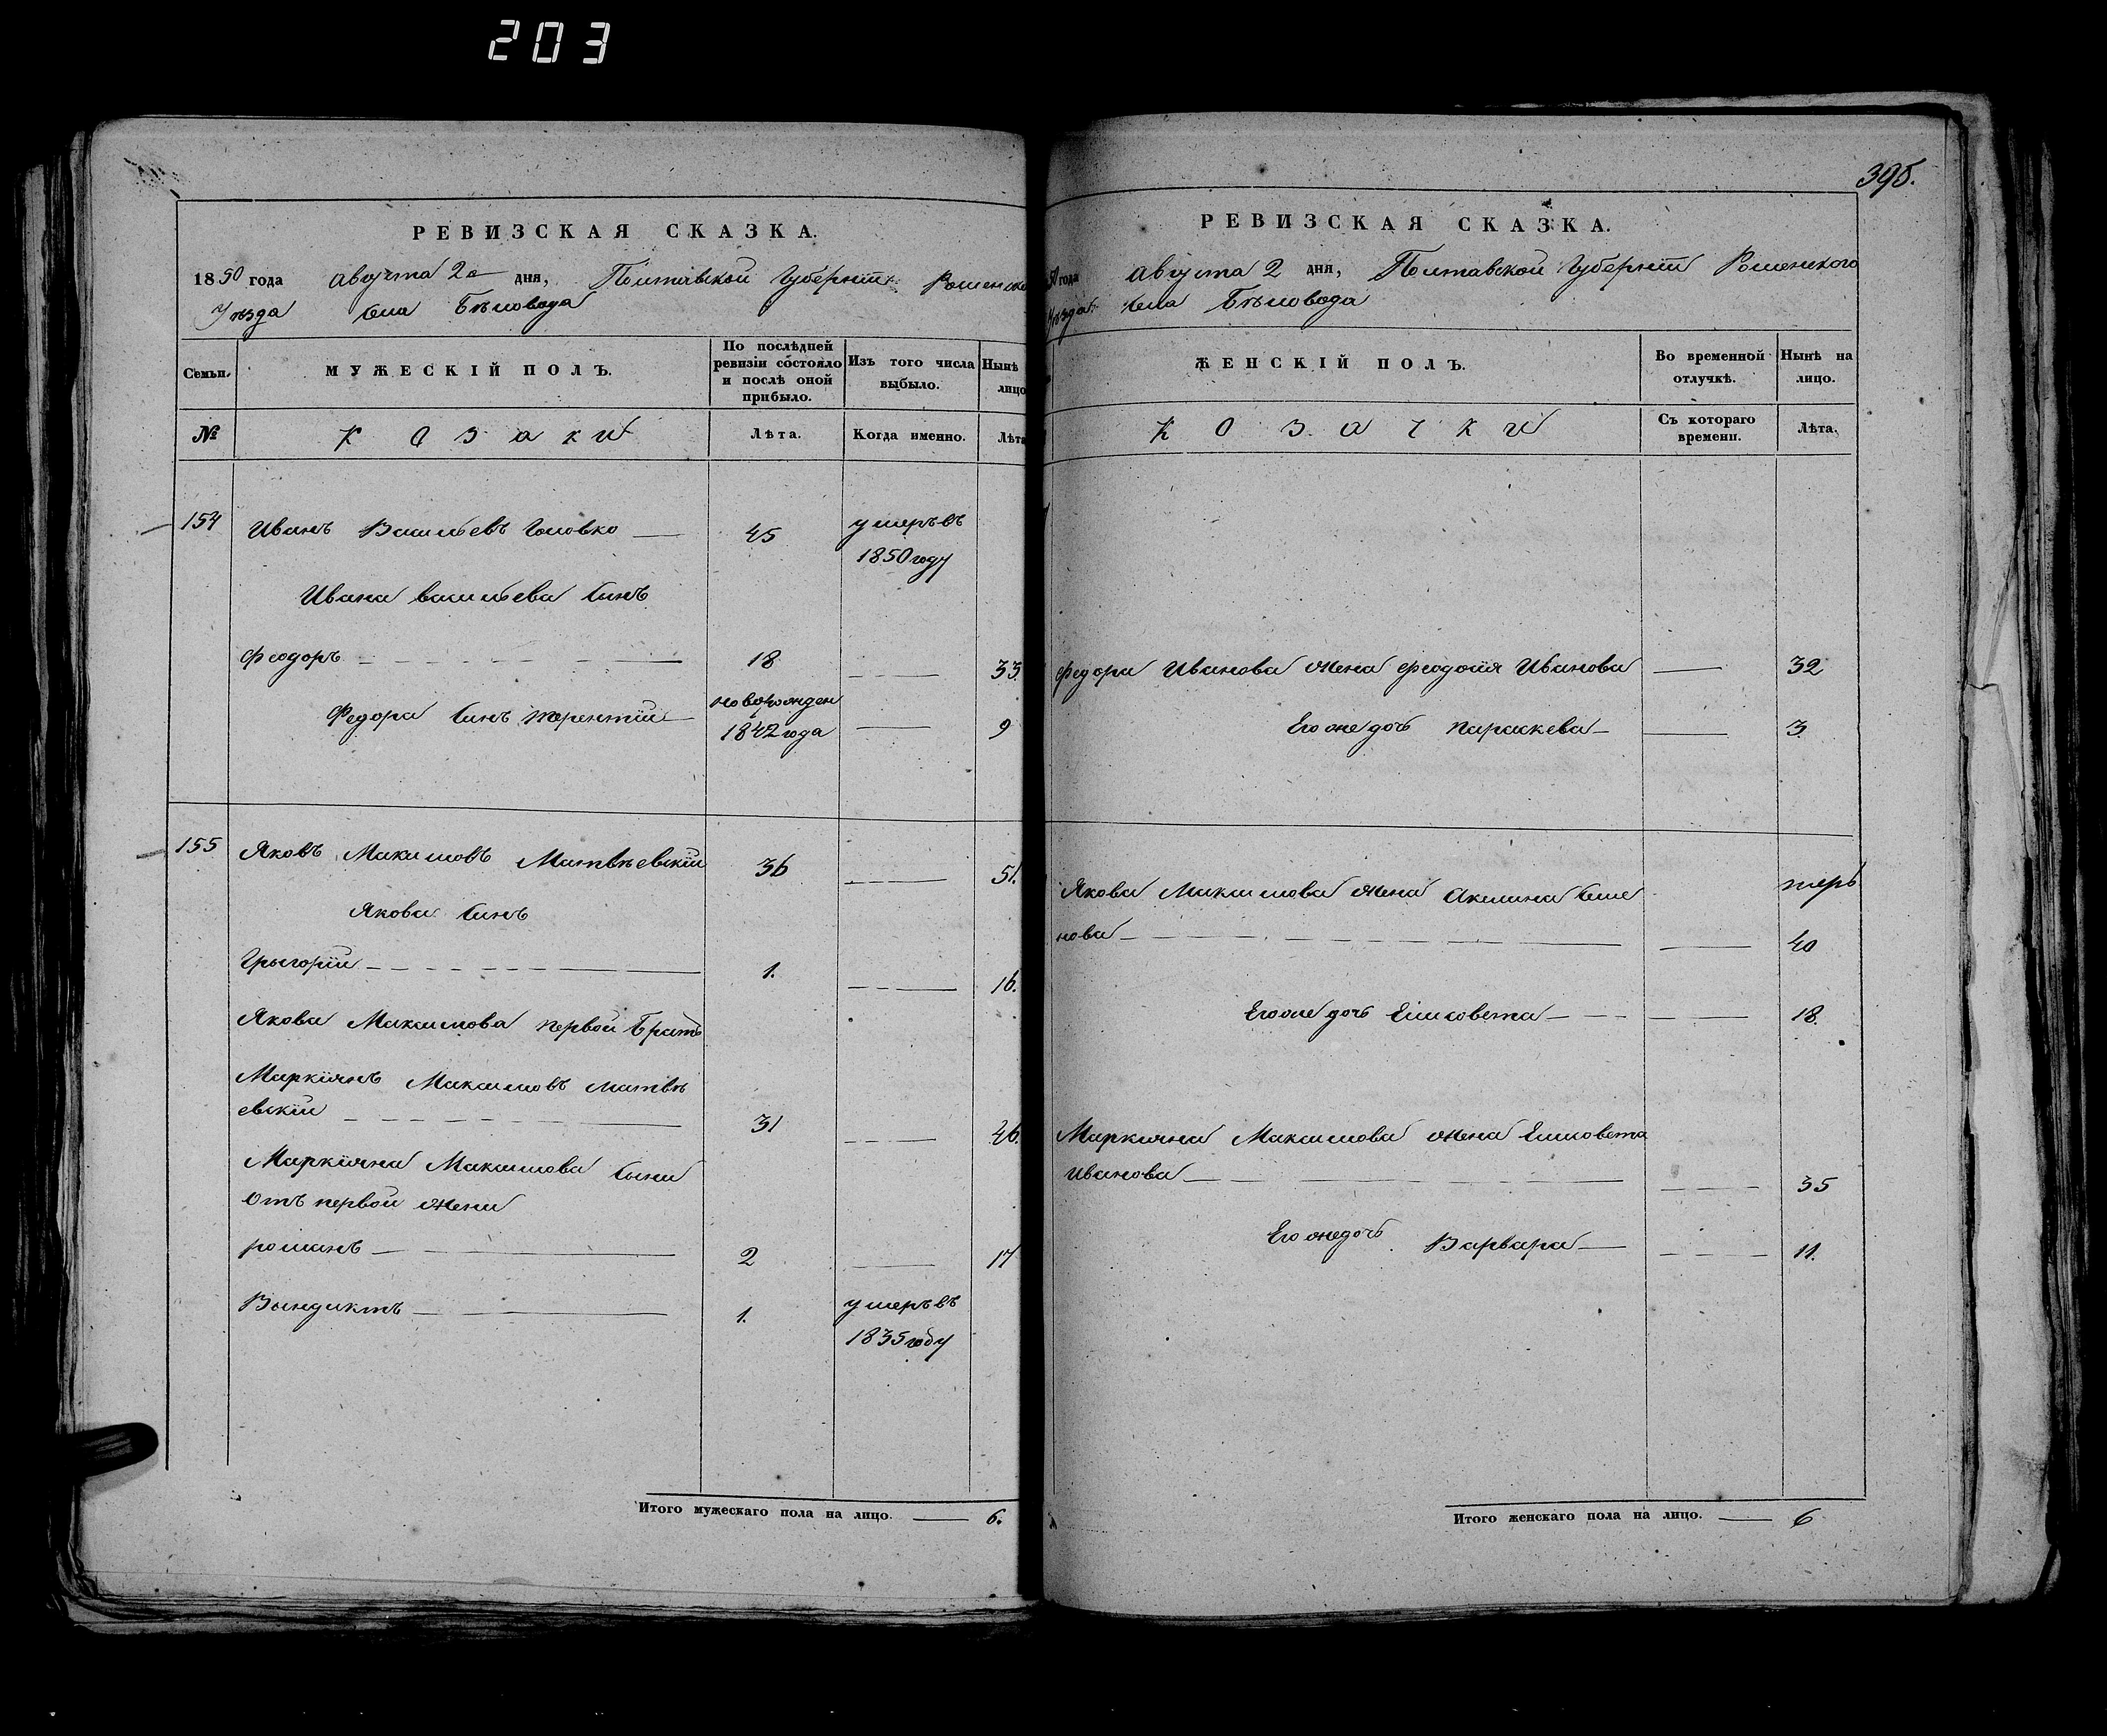 203
395.
РЕВИЗСКАЯ СКАЗКА.
1850 года августа 2го дня, Полтавской Губерніи Роменско
Уѣзда села Бѣловода
Семьи.
МУЖЕСКІЙ ПОЛЪ.
По послѣдней ревизіи состояло и послѣ оной прибыло.
Изъ того числа выбыло.
Нынѣ лицо
№
Козаки
Лѣта.
Когда именно.
Лѣта
154
Иванъ Васильевъ Головко — 45 умеръ въ
1850 году
Ивана васильева Синъ
Феодоръ — 18 — 33.
новорожден
Федора Синъ терентій — 1842 года — 9
155
Яковъ Максимовъ Матвѣевскій 36 — 51.
Якова Синъ
Григорій — 1. — 16.
Якова Максимова первой Братъ
Маркіянъ Максимовъ матвѣ
евскій — 31 — 46.
Маркіяна Максимова Сыни
отъ первой жени
романъ — 2 — 17
Вындиктъ — 1. умеръ въ
1835 году
Итого мужескаго пола на лицо. — 6.
РЕВИЗСКАЯ СКАЗКА.
50 года августа 2 дня, Полтавской Губерніи Роменского
Уѣзда села Бѣловода
ЖЕНСКІЙ ПОЛЪ.
Во временной отлучкѣ.
Нынѣ на лицо.
Козачки
Съ котораго времени.
Лѣта.
Федора Иванова жена феодосія Иванова — 32
Его же дочь параскева — 3.
Якова Максимова жена Акилина Семе
нова — 40
Его же дочь Елисовета — 18.
Маркияна Максимова жена Елисовета
Иванова — 35
Его же дочь Варвара — 11.
Итого женскаго пола на лицо. — 6